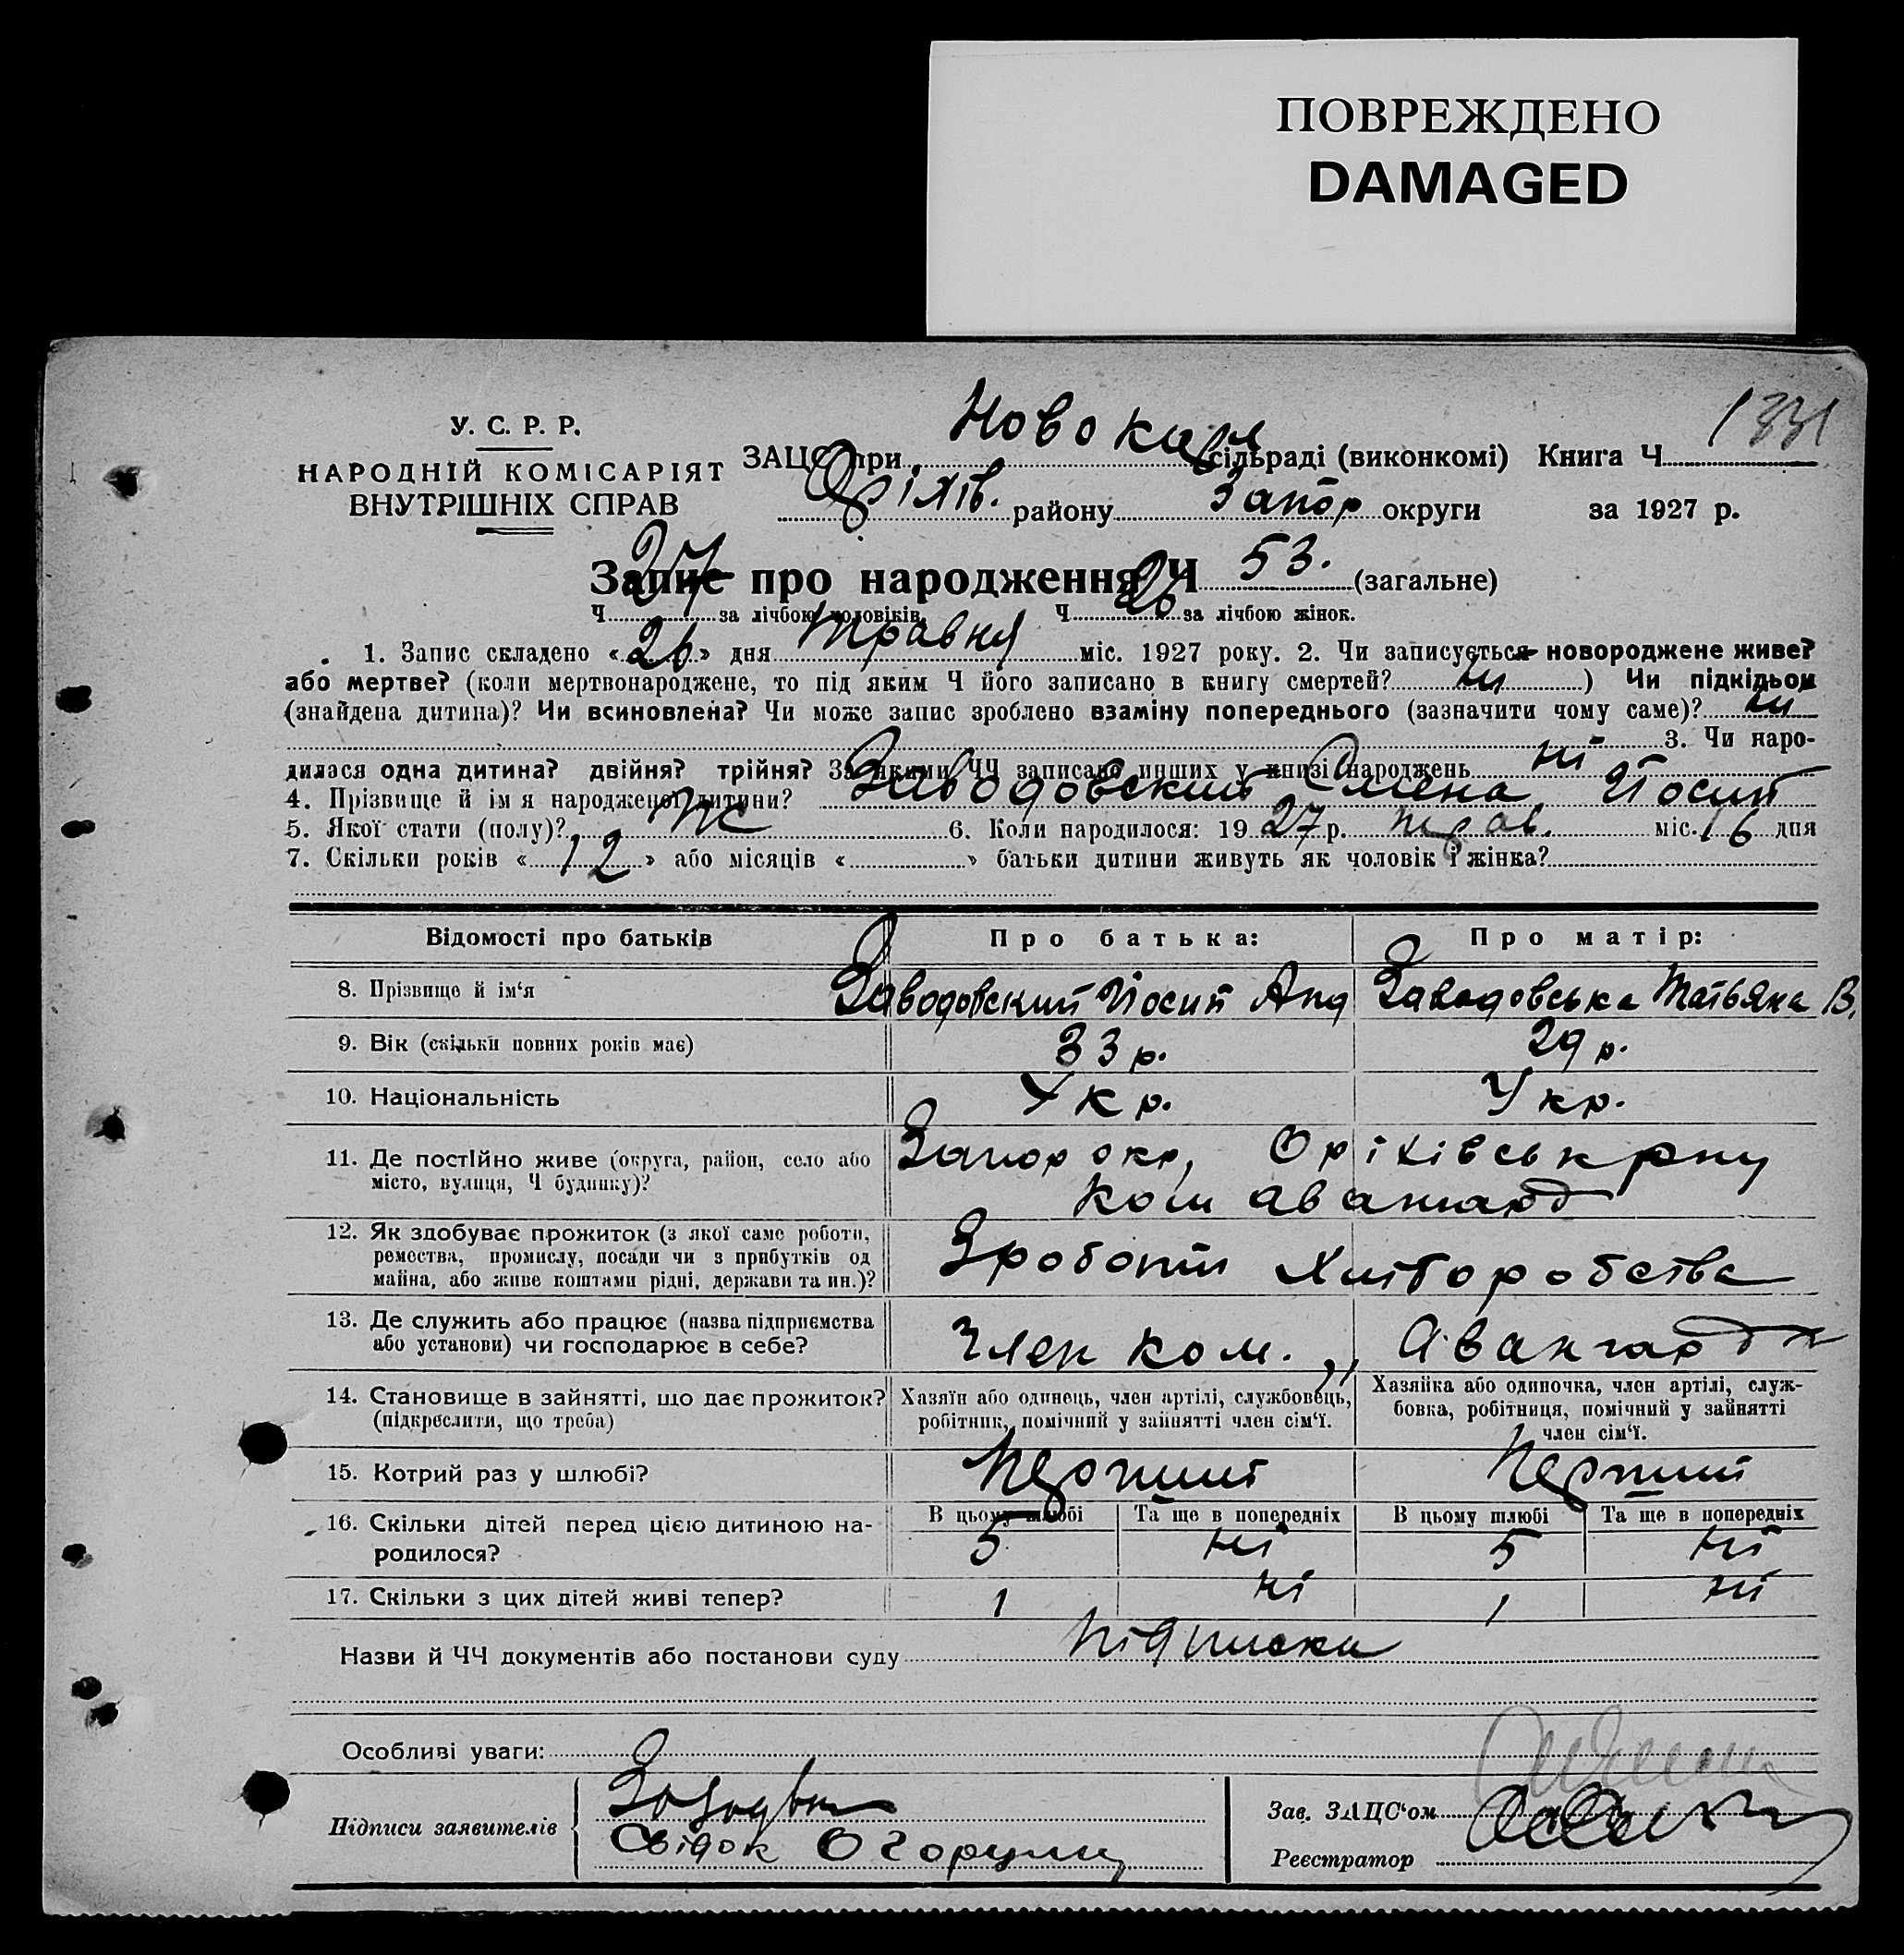 ПОВРЕЖДЕНО
DAMAGED
У. С. Р. Р.
НАРОДНІЙ КОМІСАРІЯТ
ВНУТРІШНІХ СПРАВ
ЗАЦС при сільраді (виконкомі) Книга Ч 1331
Оріхів. району Запор округи за 1927 р.
Запис про народження Ч 53. (загальне)
Ч 27 за лічбою чоловіків. Ч 26 за лічбою жінок.
1. Запис складено «26» дня Травня міс. 1927 року. 2. Чи записується новороджене живе?
або мертве? (коли мертвонароджене, то під яким Ч його записано в книгу смертей? ні) Чи підкідьок
(знайдена дитина)? Чи всиновлена? Чи може запис зроблено взаміну попереднього (зазначити чому саме)? ні
3. Чи наро-
дилася одна дитина? двійня? трійня? За якими ЧЧ записано инших у книзі народжень ні
4. Прізвище й ім я народженої дитини? Заводовский Йосип
5. Якої стати (полу)? 6. Коли народилося: 1927 р. трав. міс. 16 дня
7. Скільки років «12» або місяців « » батьки дитини живуть як чоловік і жінка?
Відомості про батьків Про батька: Про матір:
8. Прізвище й ім‘я Заводовский Йосип Анд Заводовська Татьяна В.
9. Вік (скільки повних років має) 33 р. 29 р.
10. Національність Укр. Укр.
11. Де постійно живе (округа, район, село або Запор окр, Оріхівськ рну
місто, вулиця, Ч будинку)? Ком авангард
12. Як здобуває прожиток (з якої саме роботи,
ремества, промислу, посади чи з прибутків од Зроботи Хліборобства
майна, або живе коштами рідні, держави та ин.)?
13. Де служить або працює (назва підприємства
або установи) чи господарює в себе? Член ком. „ Авангард "
14. Становище в зайнятті, що дає прожиток? Хазяїн або одинець, член артілі, службовець, Хазяйка або одиночка, член артілі, служ-
(підкреслити, що треба) робітник, помічний у зайнятті член сім‘ї. бовка, робітниця, помічний у зайнятті
член сім‘ї.
15. Котрий раз у шлюбі? Перший Перший
16. Скільки дітей перед цією дитиною на- В цьому шлюбі Та ще в попередніх В цьому шлюбі Та ще в попередніх
родилося? 5 ні 5 ні
17. Скільки з цих дітей живі тепер? 1 ні 1 ні
Назви й ЧЧ документів або постанови суду підписка
Особливі уваги:
Підписи заявителів
Свідок
Зав. ЗАЦС‘ом
Реєстратор